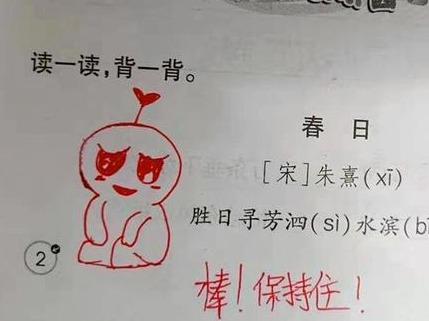 读一读,背一背。
春 日
[宋]朱熹(xī)
胜日寻芳泗(sì)水滨(b
2
棒!保持住!